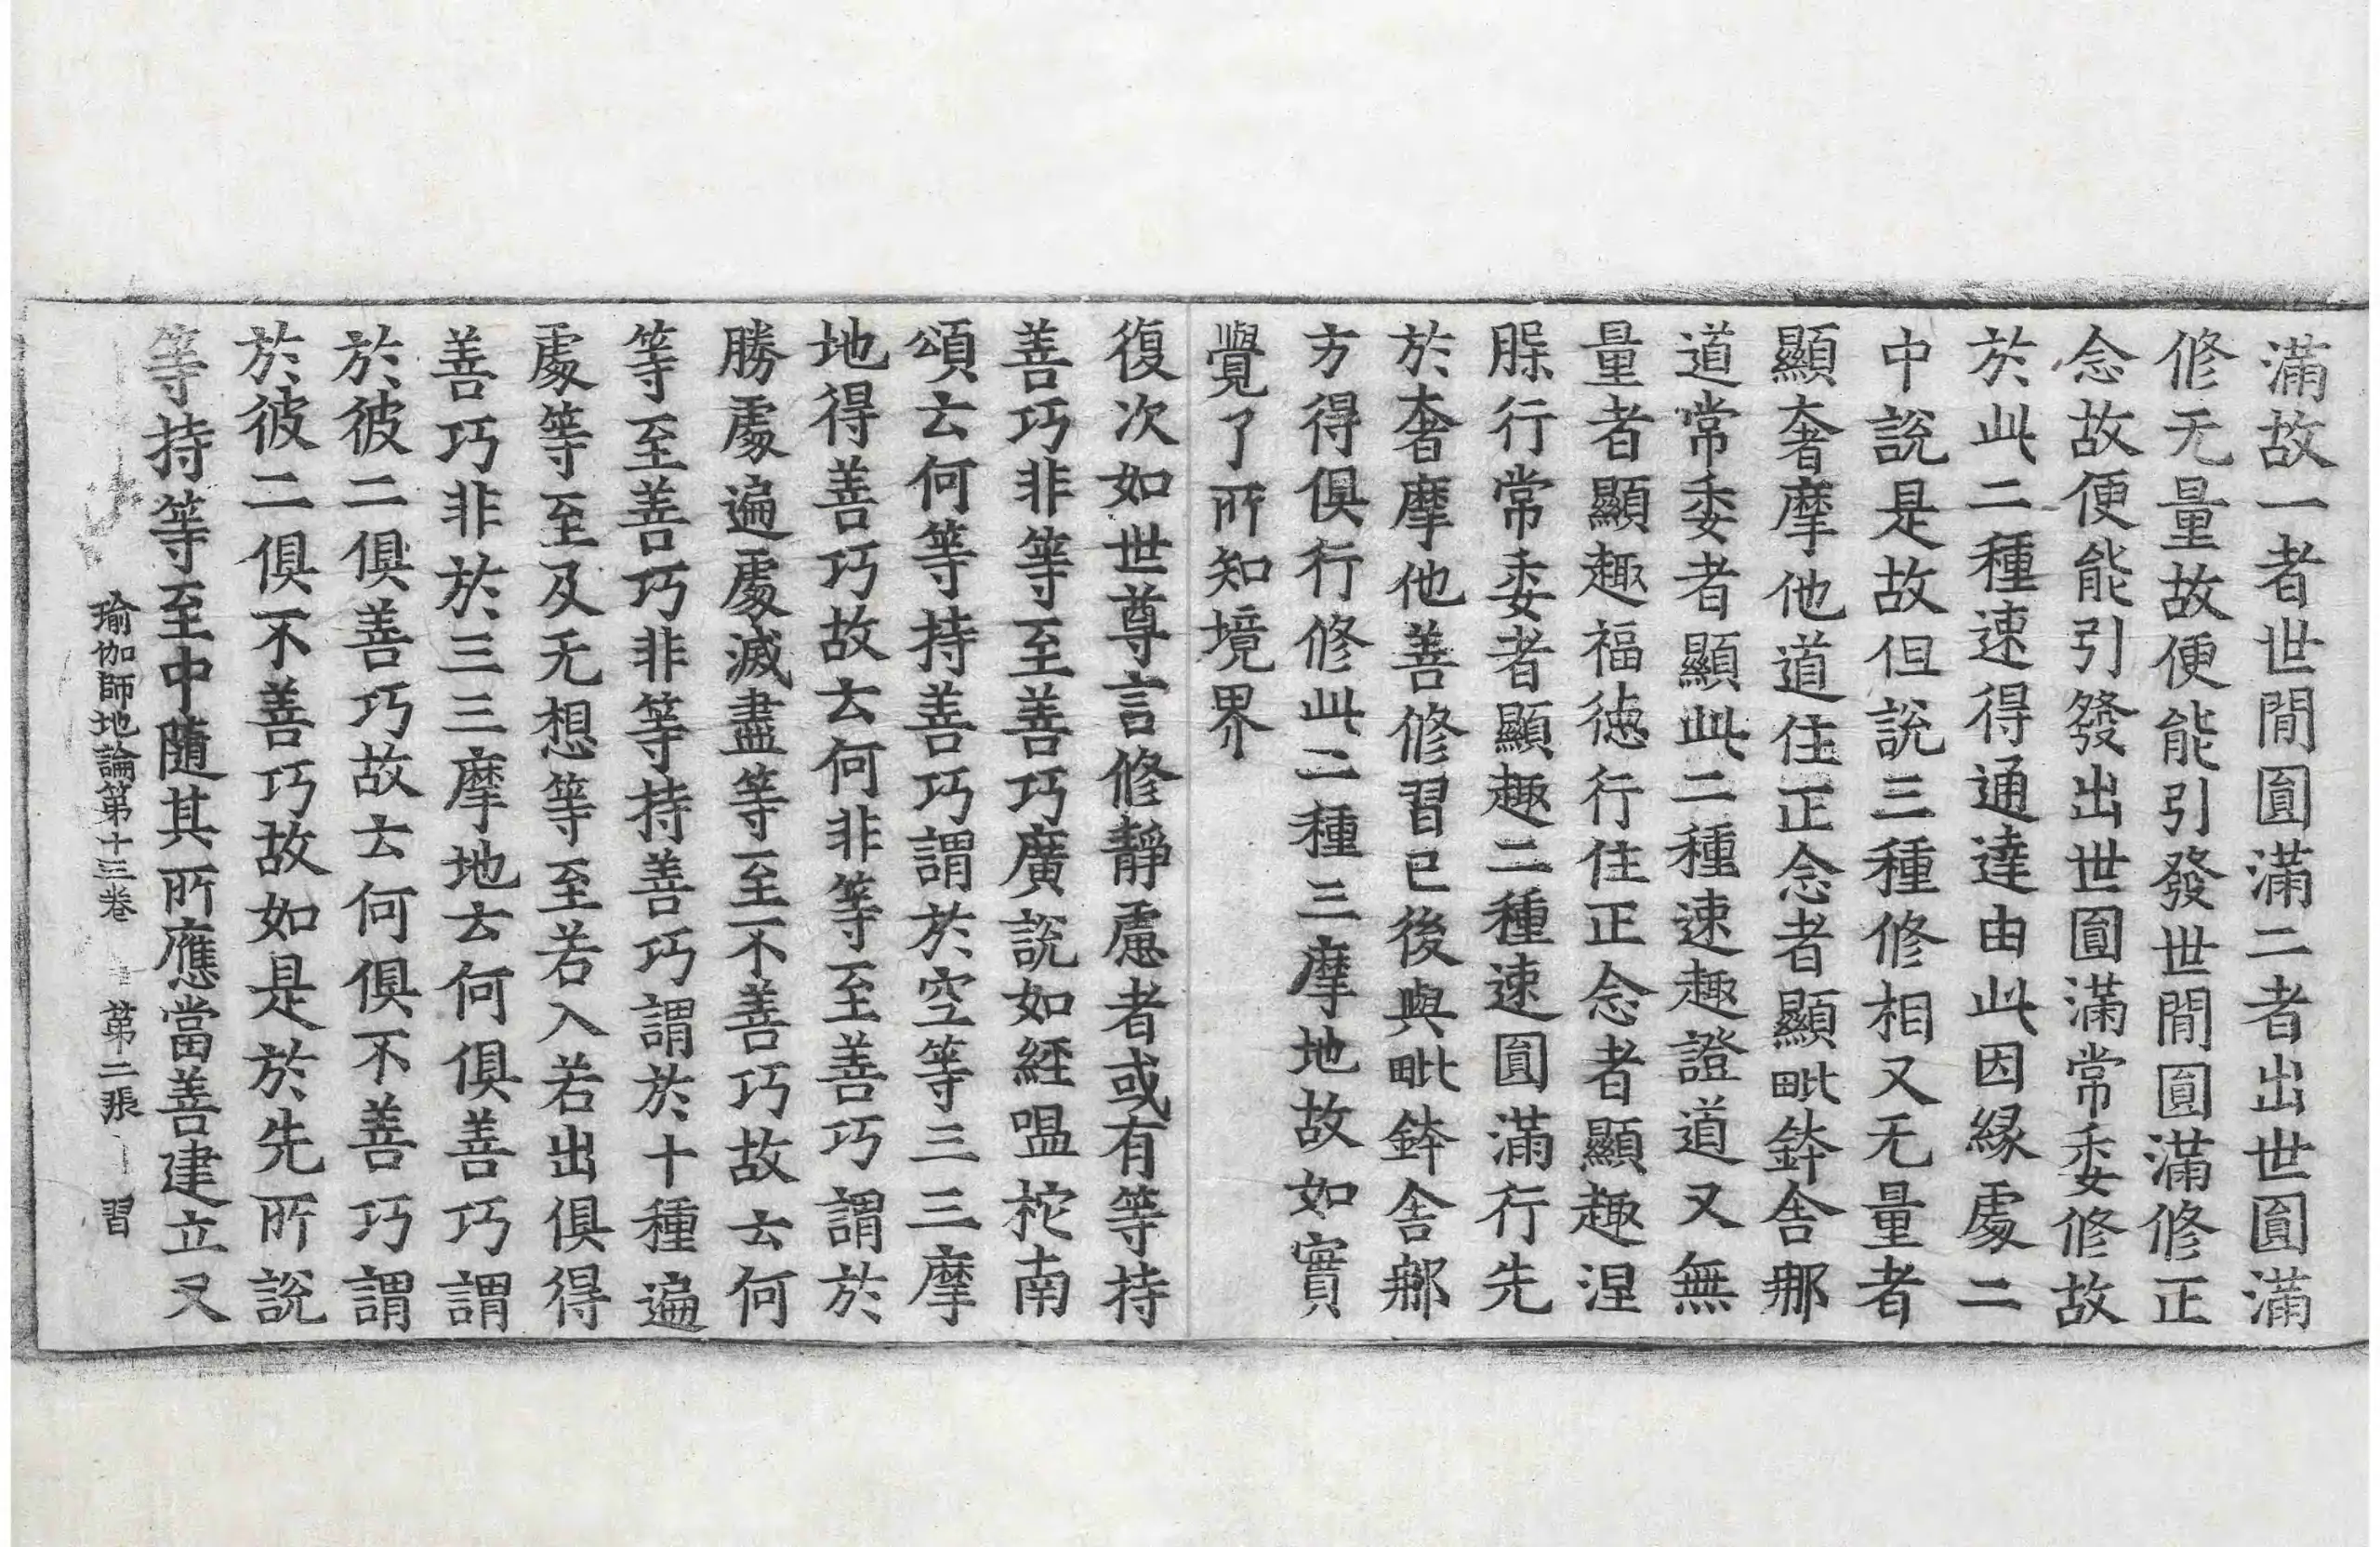 滿故一者世間圓滿二者出世圓滿
修无量故便能引發世間圓滿修正
念故便能引發出世圓滿常委修故
於此二種速得通達由此因緣處二
中說是故但說三種修相又无量者
顯奢摩他道住正念者顯毗鉢舍那
道常委者顯此二種速趣證道又無
量者顯趣福德行住正念者顯趣涅
槃行常委者顯趣二種速圓滿行先
於奢摩他善修習已後與毗鉢舍那
方得俱行修此二種三摩地故如實
覺了所知境界
復次如世尊言修靜慮者或有等持
善巧非等至善巧廣說如經嗢柁南
頌云何等持善巧謂於空等三三摩
地得善巧故云何非等至善巧謂於
勝處遍處滅盡等至不善巧故云何
等至善巧非等持善巧謂於十種遍
處等至及无想等至若入若出俱得
善巧非於三三摩地云何俱善巧謂
於彼二俱善巧故云何俱不善巧謂
於彼二俱不善巧故如是於先所說
等持等至中隨其所應當善建立又
瑜伽師地論第十三卷 第二張 習